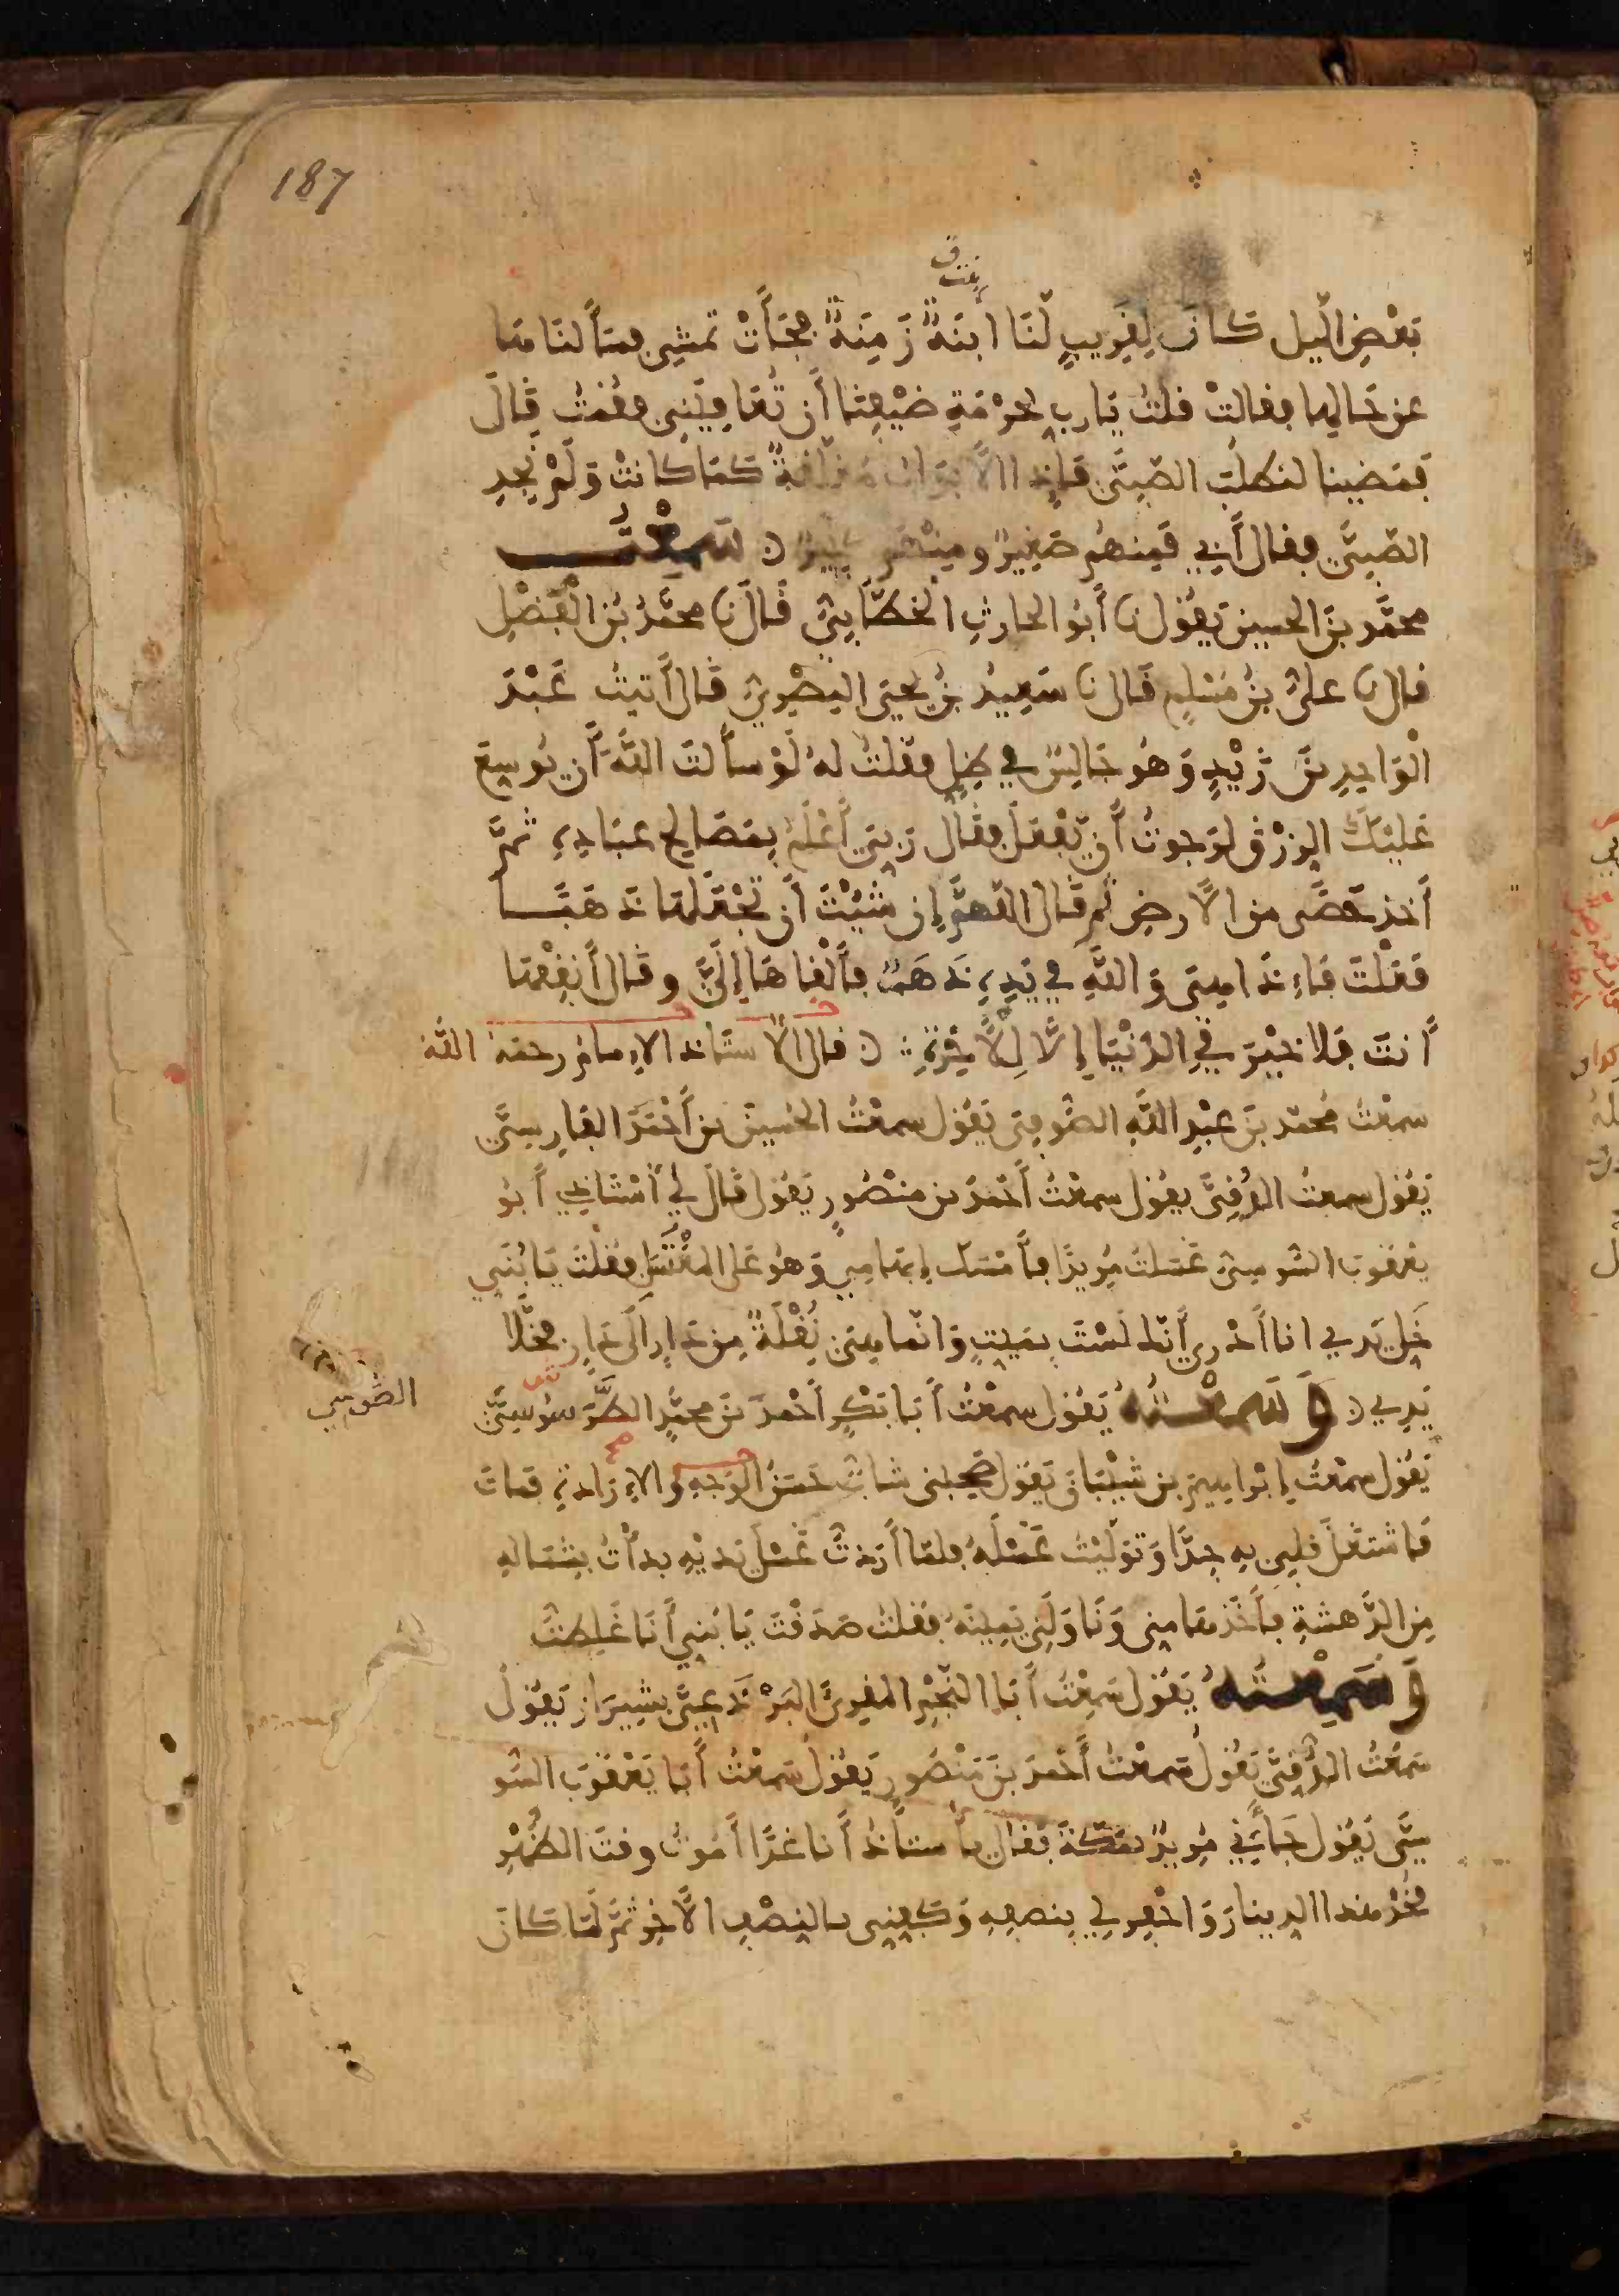 187
بنت
بَعْضِ الّيل كان لِقَرِيبٍ لَّنَا ابْنَةٌ زَمِنَةٌ فجَأَتْ تَمشِى فسَأَلنَاهَا
عن حَالِها فقالتْ قلتُ يَا رب بحُرْمَةِ ضَيْفِنَا أَن تُعَافِيَنِى فقُمتُ قَالَ
فمَضينا لنطلُبَ الصَّبِيَّ فإذا الأَبْوَابُ مُغْلَقَةٌ كمَا كَانتْ وَلَمْ نَجِدِ
الصَّبِيَّ فقال أَبِي فَمِنهُم صَغِيرٌ ومِنْهُم كَبِيرٌ سَمِعْتُ
محمَّد بنَ الحسين يَقُول نا أَبُو الحارثِ الخطَّابِيُّ قَالَ نا محمَّدُ بْنُ الْفَضْلِ
قال نا علىُّ بنُ مُسْلِمٍ قَال نا سَعِيدُ بْنُ يَحيَى البَصْرِيُّ قَالَ أَتيتُ عَبْدَ
الْوَاحِدِ بنَ زَيْدٍ وَهُو جَالِسٌ في ظِلٍ فقلتُ لهُ لَوْ سأَلتَ اللَّهَ أَن يُوسِعَ
عَلَيْكَ الرِّزْقَ لَرَجوتُ أَن يَّفْعَلَ فقَال رَبِّى أَعْلَمُ بِمَصَالِحِ عِبَادِهِ ثُمَّ
أَخذ حَصًى من الأَرضِ ثُم قَال اللّهمَّ إن شئْتَ أَن تَجْعَلَهَا ذَهَبًا
فعَلْتَ فَإِذَا هِىَ وَاللَّهِ في يَدِهِ ذَهَبٌ فأَلْقَاهَا إِلَىَّ وقَال أَنفِقْهَا
أَنتَ فلا خَيْرَ فِي الدُّنْيَا إِلَّا لِلأَخِرَةِ قال الأستاذ الإمام رحمَهُ اللَّه
سمعْتُ مُحمّد بنَ عبْدِ اللَّهِ الصُّوفِىَّ يَقُول سمعْتُ الحُسينَ بن أَحْمَدَ الفَارِسِىَّ
يَقُول سمعتُ الدُّقِىَّ يقُول سمعْتُ أَحْمدَ بن مَنْصُورٍ يَقُول قَالَ لي أُسْتَاذِي أَبُو
يَعْقُوبَ السُّوسِىُّ غَسَلتُ مُرِيدًا فأَمْسَكَ إِبْهَامِي وَهُو عَلى المُغْتَسَلِ فقُلْتُ يَا بُنَيَّ
خَلِّ يَدِي انا أَدْرِي أَنّكَ لَسْتَ بمَيِّتٍ وَانّما هِىَ نُقْلَةٌ مِن دَارٍ الَى دَارٍ فخَلَّا
يَدِي وَسَمِعْتُهُ يَقُول سمعْتُ أَبَا بَكْرٍ أَحْمدَ بنَ محمَّدٍ الطَّرَسُوسِىَّ
الطُّوسِي
يَقُول سمعْتُ إِبْرَاهِيمَ بن شَيْبَانَ يَقُول صَحِبَنى شابٌّ حَسَنُ الوَجهِ والإِرَادَةِ فمَات
فَاشتَغَلَ قلبِى بِهِ جِدًّا وَتوَلَّيْتُ غَسْلَهُ فلمّا أَرَدتُّ غَسْلَ يَدَيْهِ بدأْتُ بِشِمَالِهِ
مِن الدَّهشَةِ فأَخَذَهَا مِنِى وَنَاوَلَنِى يَمِينَهُ فقُلتُ صَدَقْتَ يَا بُني أَنَا غَلِطتُّ
وَسَمِعْتُهُ يَقُول سَمِعْتُ أَبَا النَّجْمِ المُقرِئَ البَرْذَعِىَّ بِشِيرَازَ يَقُولُ
سَمِعْتُ الدُّقِىَّ يَقُولُ سَمعْتُ أَحْمدَ بنَ مَنْصُورٍ يَقُولُ سَمعْتُ أَبَا يَعْقُوبَ السُّو
سِىَّ يَقُول جَأَنِي مُرِيدٌ بمَكّةَ فقَال يأستاذُ أَنا غدًا أَمُوتُ وقتَ الظُّهْرِ
فخُذْ هذا الدِّينارَ وَاحْفِر لي بِنصفِهِ وَكَفِّنِى بالنِّصْفِ الأَخِرِ ثمَّ لَمَّا كَانَ